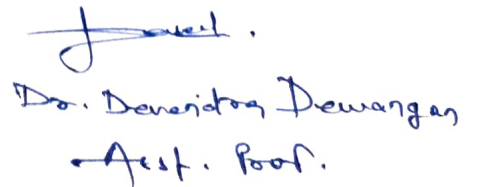 Dr. Devendra Dewangan
Asst. Prof.